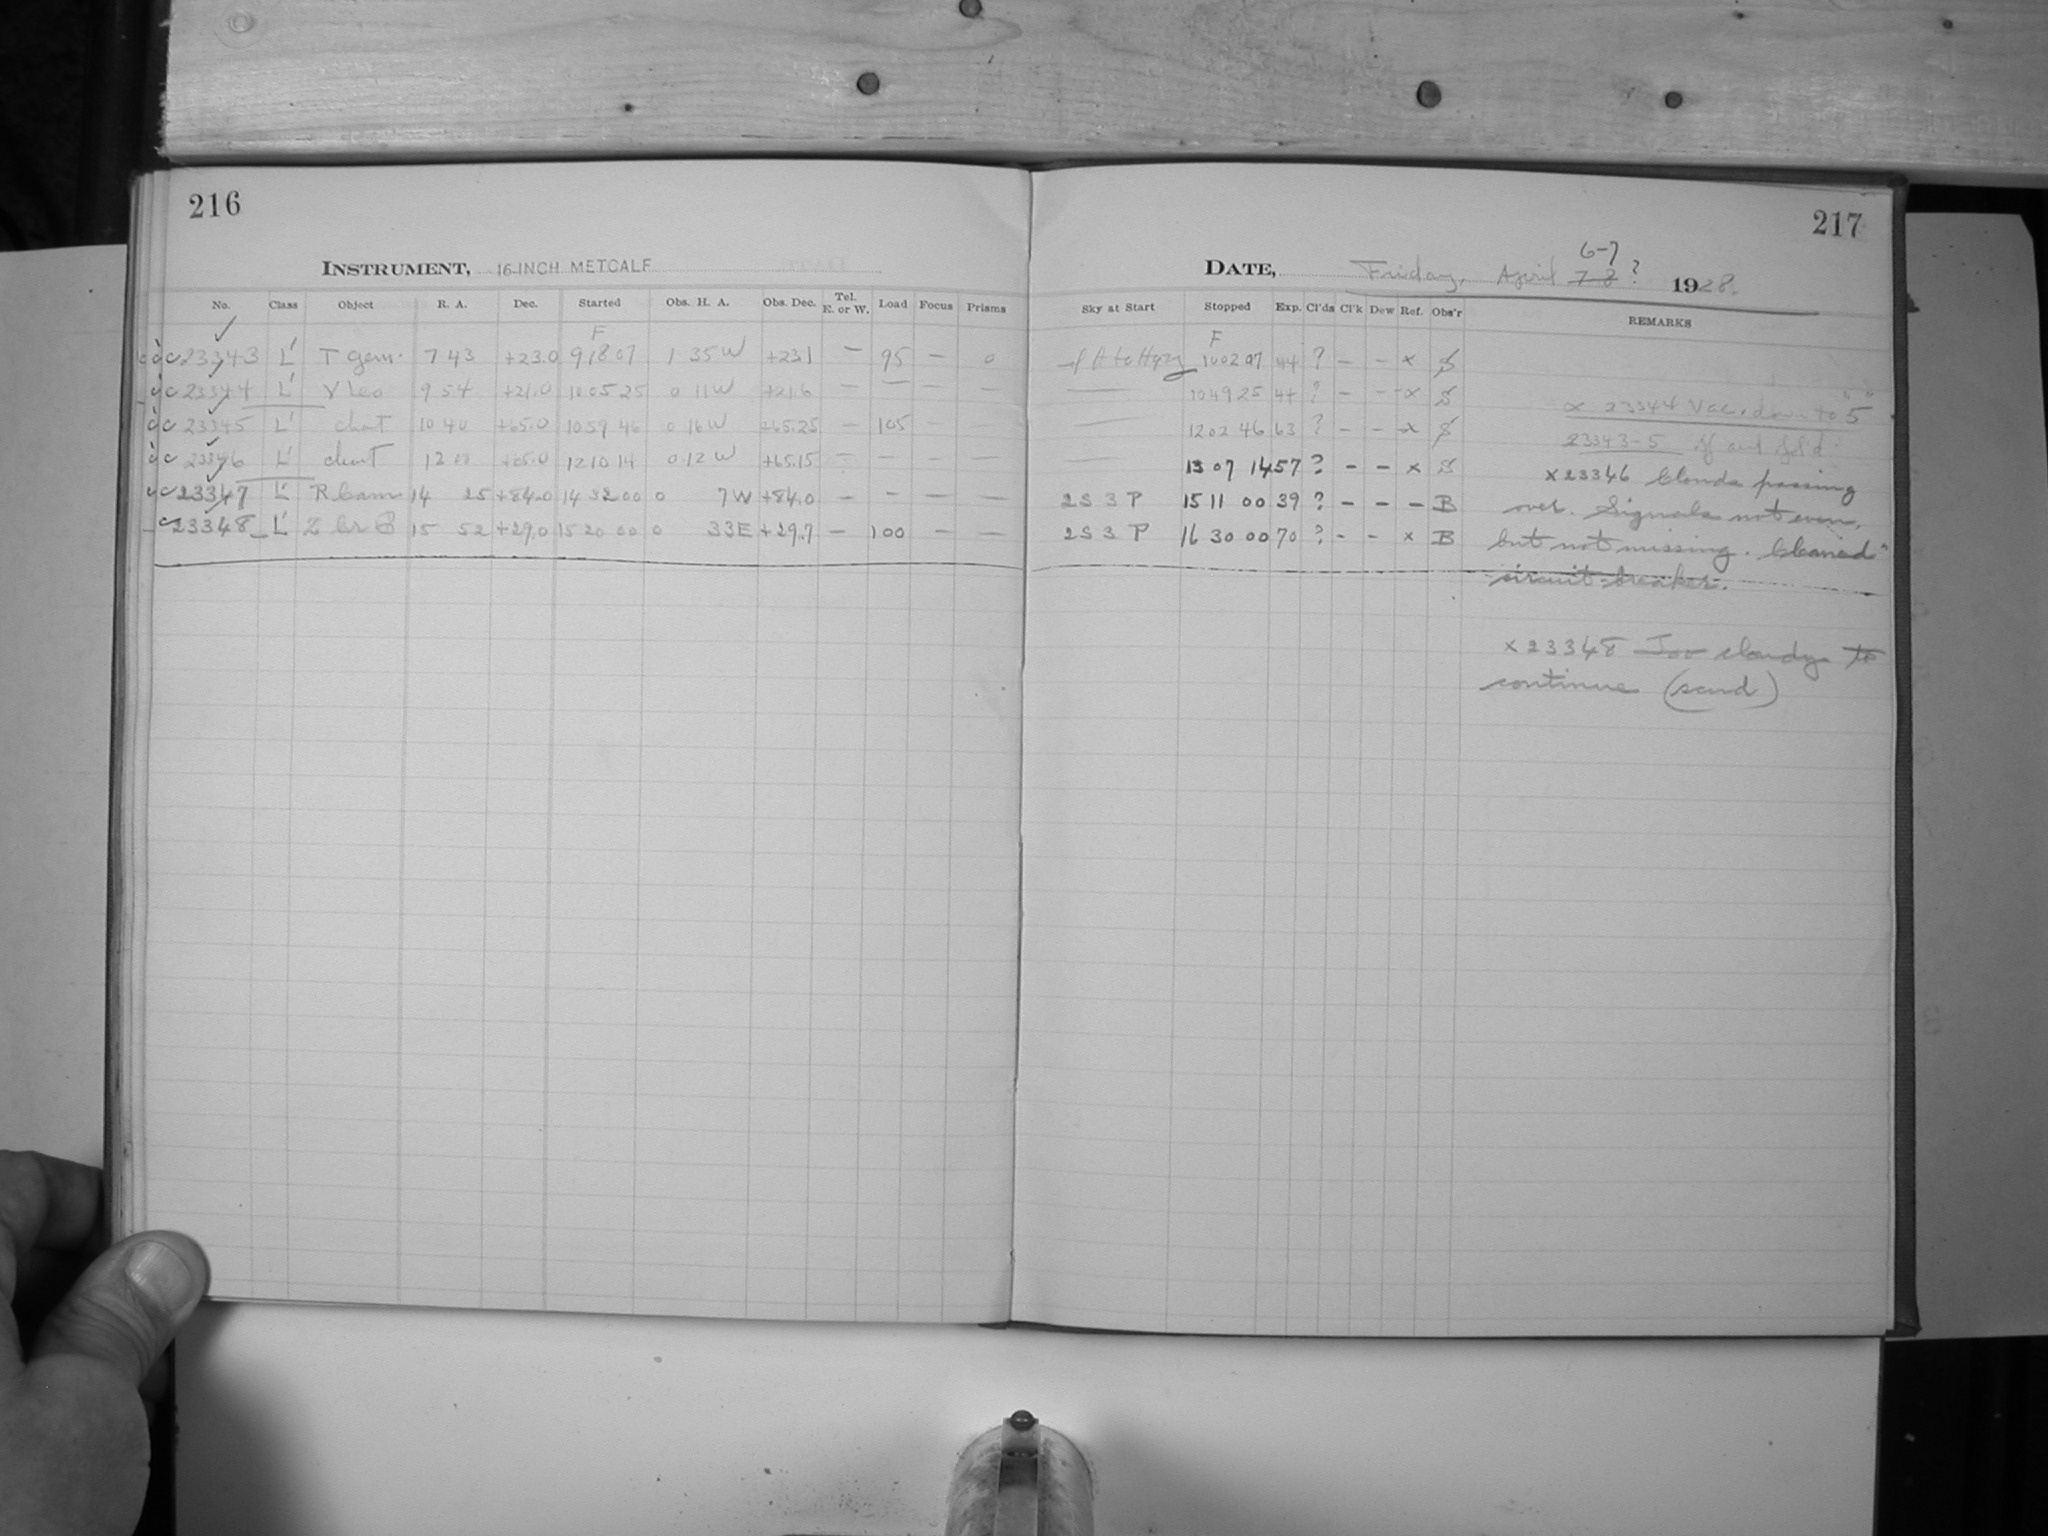 216
INSTRUMENT, 16-INCH METCALF
No. Class Object R. A. Dec. Started Obs. H. A. Obs. Dec. Tel. E. or W. Load Focus Prisms
F
23343 L' T Gem. 7 43 +23.0 9 18 07 1 35 W +23.1 — 95 — 0
23344 L' V Leo 9 54 +21.0 10 05 25 0 11 W +21.6 — — — —
23345 L' chart 10 40 +65.0 10 59 46 0 16 W +65.25 — 105 — —
23346 L' chart 12 00 +65.0 12 10 14 0 12 W +65.15 — — — —
23347 L' R Cam 14 25 +84.0 14 32 00 0 7 W +84.0 — — — —
23348 L' Z Cr B 15 52 +29.0 15 20 00 0 33 E +29.7 — 100 — —
217
DATE, Friday, April 7-8 6-7 ? 1928.
Sky at Start Stopped Exp. Cl'ds Cl'k Dew Ref. Obs'r REMARKS
F
to Hazy 10 02 07 44 ? — — x S
— 10 49 25 44 ? — — x S
— 12 02 46 63 ? — — x S
— 13 07 14 57 ? — — x S
2 S 3 P 15 11 00 39 ? — — — B
2 S 3 P 16 30 00 70 ? — — x B
x 23344 Vac. down to "5"
23343-5 off and
x 23346 Clouds passing
over. Signals not even,
but not missing. Cleaned
circuit-breaker.
x 23348 Too cloudy to
continue (scud)